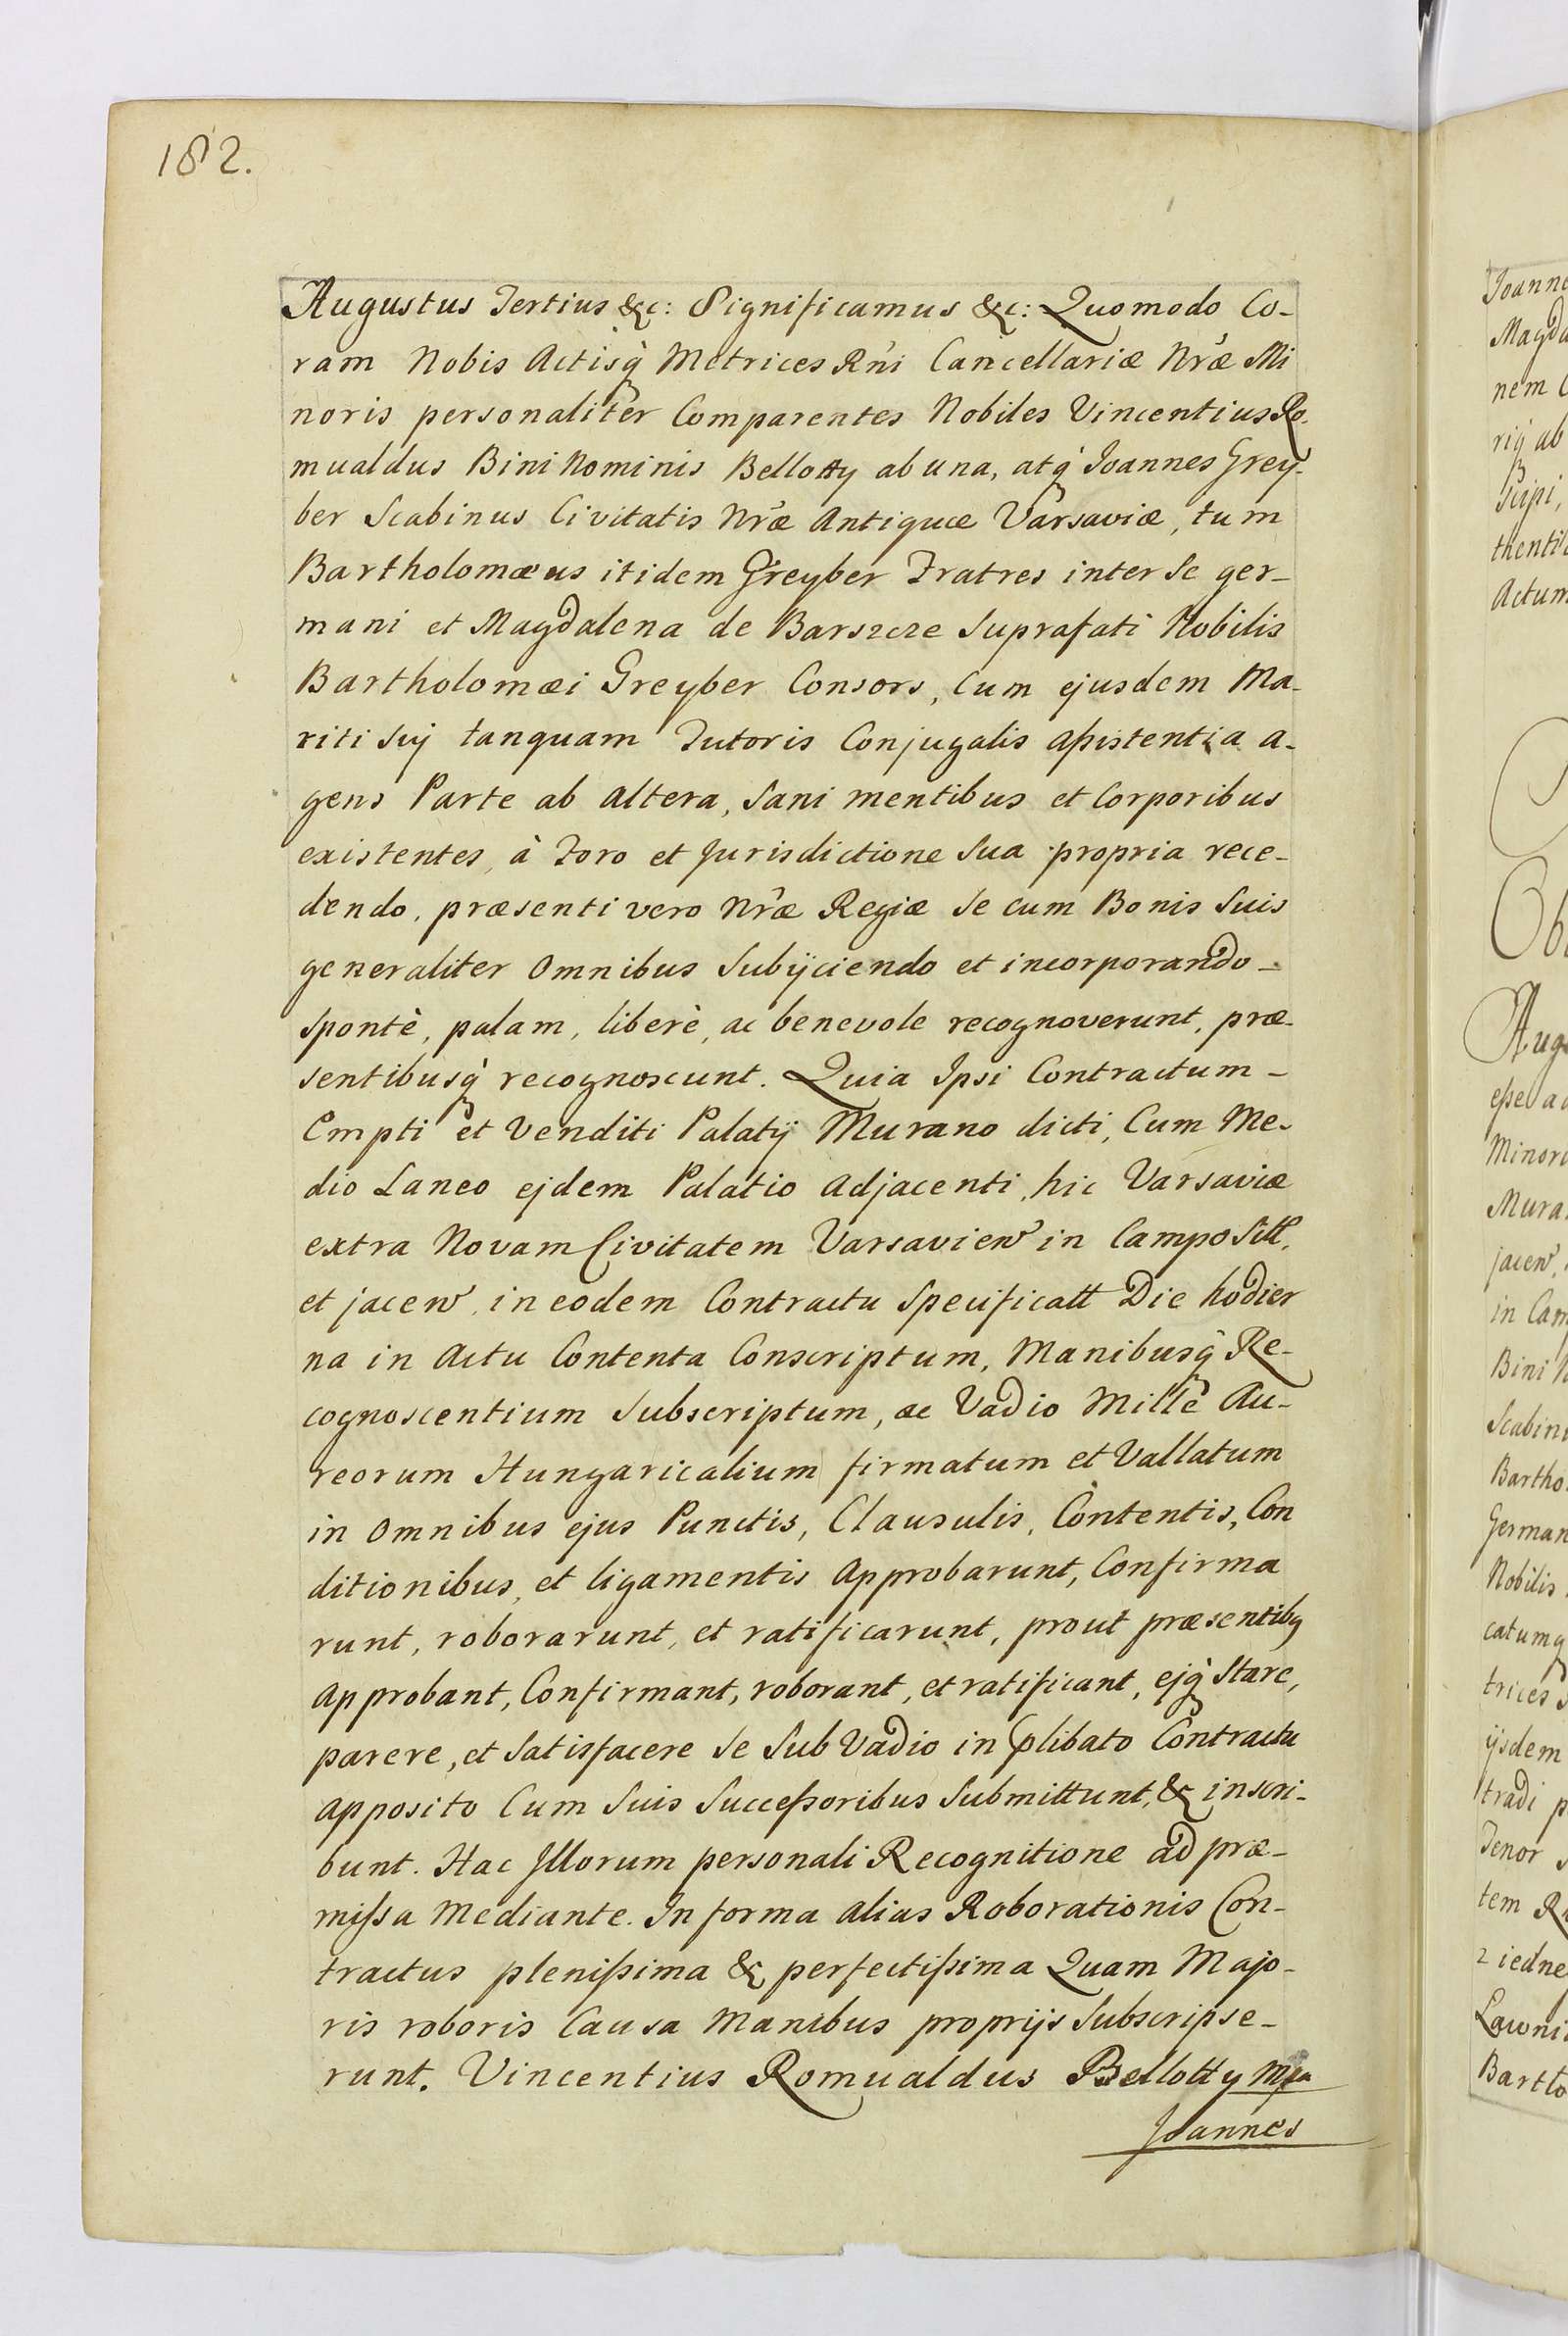 182.
Augustus Tertius &c: Significamus &c: Quomodo Co-
ram Nobis Actisq̀ Metrices Rñi Cancellariæ Nr̃æ Mi
noris personaliter Comparentes Nobiles Vincentius Ro-
mualdus Bini Nominis Bellotty ab una, atq̀ Joannes Grey-
ber Scabinus Civitatis Nr̃æ Antiquæ Varsaviæ, tum
Bartholomæus itidem Greyber Fratres inter Se ger-
mani et Magdalena de Barszcze Suprafati Nobilis
Bartholomæi Greyber Consors, Cum ejusdem Ma-
riti Sui tanquam Tutoris Conjugalis aſsistentia a-
gens Parte ab altera, Sani mentibus et Corporibus
existentes, à Foro et Jurisdictione Sua propria rece-
dendo, præsenti vero Nr̃æ Regiæ Se cum Bonis Suis
generaliter Omnibus Subijciendo et incorporando -
Spontè, palam, liberè, ac benevole recognoverunt, præ-
sentibusq̀ recognoscunt. Quia Ipsi Contractum -
Empti et Venditi Palatij Murano dicti, Cum Me-
dio Laneo ejdem Palatio adjacenti, hic Varsaviæ
extra Novam Civitatem Varsavien̄ in Campo Sitt,
et jacen̄, in eodem Contractu Specificatt Die hodier
na in Actu Contenta Conscriptum, Manibusq̀ Re-
cognoscentium Subscriptum, ac Vadio Mille Au-
reorum Hungaricalium firmatum et Vallatum
in Omnibus ejus Punctis, Clausulis, Contentis, Con
ditionibus, et ligamentis Approbarunt, Confirma
runt, roborarunt, et ratificarunt, prout præsentibq
Approbant, Confirmant, roborant, et ratificant, ejq̀ Stare,
parere, et Satisfacere Se Sub Vadio in p̃libato Contractu
apposito Cum Suis Succeſsoribus Submittunt, & inscri-
bunt. Hac Illorum personali Recognitione ad præ-
miſsa Mediante. In forma alias Roborationis Con-
tractus pleniſsima & perfectiſsima Quam Majo-
ris roboris Causa Manibus proprijs Subscripse-
runt. Vincentius Romualdus Bellotty Mpa
Joannes
Joanne
Magda
nem C
rijq̀ ab
Scipi,
thentic
Actum
Ob
Augu
eſse ac
Minori
Mura
jacen̄,
in Cam
Bini N
Scabinu
Bartho
German
Nobilis
catumq̀
trices s
ijsdem
tradi p
Tenor s
tem R
z iedne
Ławni
Bartło